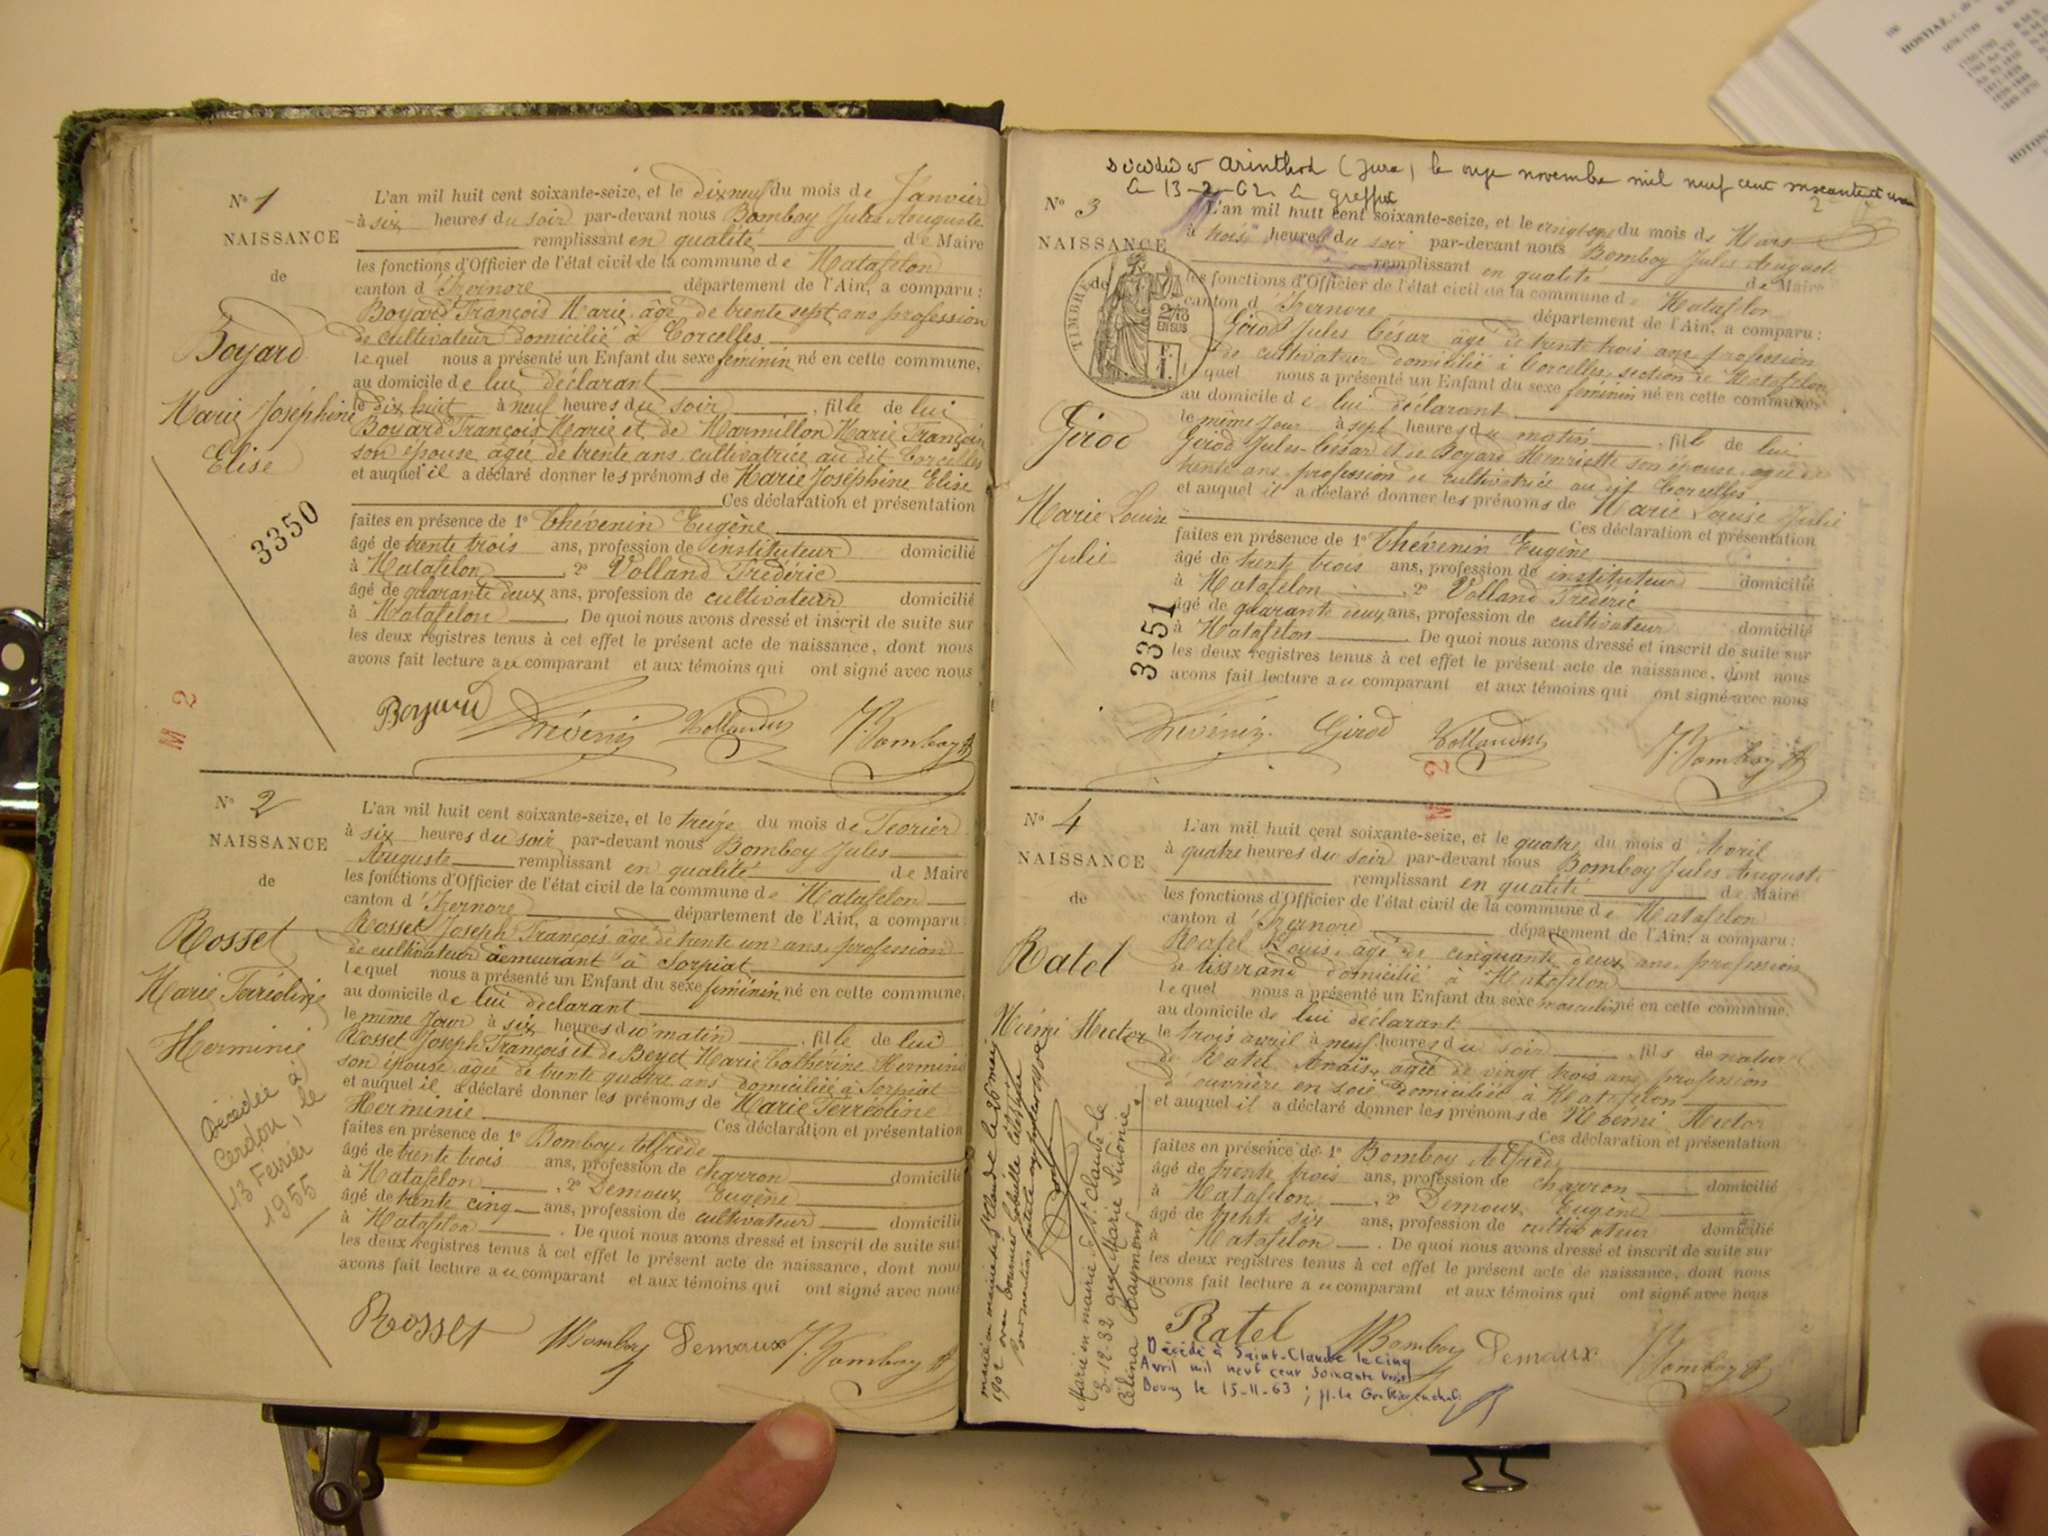 Nº 1
NAISSANCE
de
Boyard
Marie Joséphine
Elise
3350
L'an mil huit cent soixante-seize, et le dix neuf du mois de Janvier
à six heures du soir par-devant nous Bomboy Jules Auguste
remplissant en qualité de Maire
les fonctions d'Officier de l'état civil de la commune de Matafelon
canton d'Izernore département de l'Ain, a comparu :
Boyard François Marie, âgé de trente sept ans profession
de cultivateur domicilié à Corcelles
Lequel nous a présenté un Enfant du sexe féminin né en cette commune,
au domicile de lui déclarant
le dix huit à neuf heures du soir, fille de lui
Boyard François Marie et de Marmillon Marie François
son épouse âgée de trente ans cultivatrice au dit Corcelles
et auquel il a déclaré donner les prénoms de Marie Joséphine Elise
Ces déclaration et présentation
faites en présence de 1º Thévenin Eugène
âgé de trente trois ans, profession de instituteur domicilié
à Matafelon, 2º Volland Frédéric
âgé de quarante deux ans, profession de cultivateur domicilié
à Matafelon. De quoi nous avons dressé et inscrit de suite sur
les deux registres tenus à cet effet le présent acte de naissance, dont nous
avons fait lecture au comparant et aux témoins qui ont signé avec nous
Boyard Thévenin Volland J. Bomboy
M 2
Nº 2
NAISSANCE
de
Rosset
Marie Terréoline
Herminie
Décédée à
Cerdon, le
13 Février
1955
L'an mil huit cent soixante-seize, et le treize du mois de Février
à six heures du soir par-devant nous Bomboy Jules
Auguste remplissant en qualité de Maire
les fonctions d'Officier de l'état civil de la commune de Matafelon
canton d'Izernore département de l'Ain, a comparu :
Rosset Joseph François âgé de trente un ans, profession
de cultivateur demeurant à Sorpiat
lequel nous a présenté un Enfant du sexe féminin né en cette commune,
au domicile de lui déclarant
le même jour à six heures du matin, fille de lui
Rosset Joseph François et de Beyet Marie Catherine Herminie
son épouse âgée de trente quatre ans domiciliée à Sorpiat
et auquel il a déclaré donner les prénoms de Marie Terréoline
Herminie Ces déclaration et présentation
faites en présence de 1º Bomboy Alfrède
âgé de trente trois ans, profession de charron domicilié
à Matafelon, 2º Demoux Eugène
âgé de trente cinq ans, profession de cultivateur domicilié
à Matafelon. De quoi nous avons dressé et inscrit de suite sur
les deux registres tenus à cet effet le présent acte de naissance, dont nous
avons fait lecture au comparant et aux témoins qui ont signé avec nous
Rosset Bomboy Demoux J. Bomboy
décédée à Arinthod (Jura) le onze novembre mil neuf cent soixante et un
Le 13-2-62 Le greffier
Nº 3
NAISSANCE
de
TIMBRE
2/10
EN SUS
Girod
Marie Louise
Julie
3351
L'an mil huit cent soixante-seize, et le du mois de Mars
à trois heures du soir par-devant nous Bomboy Jules Auguste
remplissant en qualité de Maire
les fonctions d'Officier de l'état civil de la commune de Matafelon
canton d'Izernore département de l'Ain, a comparu :
Girod Jules César âgé de trente trois ans profession
de cultivateur domicilié à Corcelles, section de Matafelon
Lequel nous a présenté un Enfant du sexe féminin né en cette commune,
au domicile de lui déclarant
le même jour à sept heures du matin, fille de lui
Girod Jules-César et de Boyard Henriette son épouse, âgée de
trente ans, profession de cultivatrice au dit Corcelles
et auquel il a déclaré donner les prénoms de Marie Louise Julie
Ces déclaration et présentation
faites en présence de 1º Thévenin Eugène
âgé de trente trois ans, profession de instituteur domicilié
à Matafelon, 2º Volland Frédéric
âgé de quarante deux ans, profession de cultivateur domicilié
à Matafelon. De quoi nous avons dressé et inscrit de suite sur
les deux registres tenus à cet effet le présent acte de naissance, dont nous
avons fait lecture au comparant et aux témoins qui ont signé avec nous
Thévenin Girod Volland J. Bomboy
M 2
Nº 4
NAISSANCE
de
Ratel
Noémi Hector
L'an mil huit cent soixante-seize, et le quatre du mois d'Avril
à quatre heures du soir par-devant nous Bomboy Jules Auguste
remplissant en qualité de Maire
les fonctions d'Officier de l'état civil de la commune de Matafelon
canton d'Izernore département de l'Ain, a comparu :
Ratel Louis, âgé de cinquante deux ans, profession
de tisserand domicilié à Matafelon
Lequel nous a présenté un Enfant du sexe masculin né en cette commune,
au domicile de lui déclarant
le trois avril à neuf heures du soir, fils de naturel
de Ratel Anaïs, âgée de vingt trois ans, profession
d'ouvrière en soie domiciliée à Matafelon
et auquel il a déclaré donner les prénoms de Noémi Hector
Ces déclaration et présentation
faites en présence de 1º Bomboy Alfrède
âgé de trente trois ans, profession de charron domicilié
à Matafelon, 2º Demoux Eugène
âgé de trente six ans, profession de cultivateur domicilié
à Matafelon. De quoi nous avons dressé et inscrit de suite sur
les deux registres tenus à cet effet le présent acte de naissance, dont nous
avons fait lecture au comparant et aux témoins qui ont signé avec nous
Ratel Bomboy Demoux J. Bomboy
Marié en mairie de St Claude le 26 mai
1902 avec
Marié en mairie de St Claude le
3-12-32 avec Marie Sidonie
Célina Raymond
Décédé à Saint-Claude le cinq
Avril mil neuf cent soixante trois
Bourg le 15-11-63 ; p. le Greffier en chef
HOSTIAZ